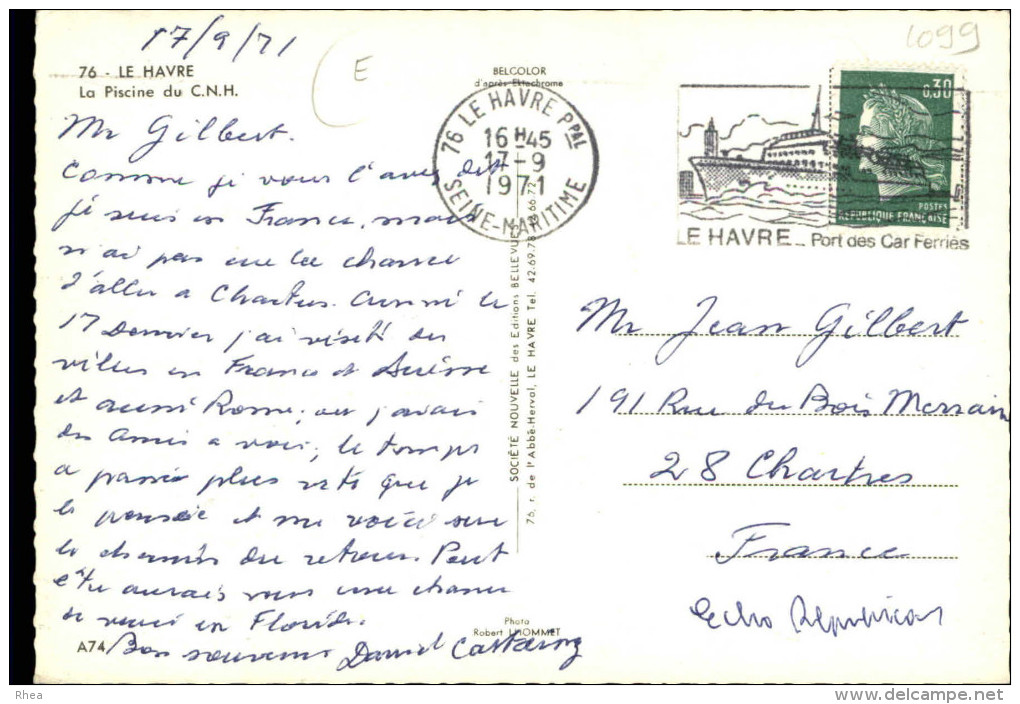 17/9/71
1099
E
76 - LE HAVRE
La Piscine du C.N.H.
BELCOLOR
d'après Ektachrome
Mr Gilbert.
Comme je vous l'avais dit
je suis en France, mais
n'ai pas eu la chance
d'aller a Chartres. Durant le
17 Dernier j'ai visité des
villes en France et Suisse
et aussi Rome, ou j'avais
des Amis a voir, le temps
a passé plus vite que je
le pensais et me voici sur
le chemin du retour. Peut
être aurais vous une chance
de venir en Floride.
Bon souvenir Daniel
A74
Photo
Robert LHOMMET
SOCIÉTÉ NOUVELLE des Editions BELLEVUES
76, r. de l'Abbé-Herval, LE HAVRE Tel. 42.69.78
76 LE HAVRE PPAL
16H45
17-9
1971
SEINE-MARITIME
LE HAVRE _ Port des Car Ferries
0,30
POSTES
REPUBLIQUE FRANÇAISE
Mr Jean Gilbert
191 Rue du Bois Merrain
28 Chartres
France
Echo Républicain
Rhea
delcampe.net